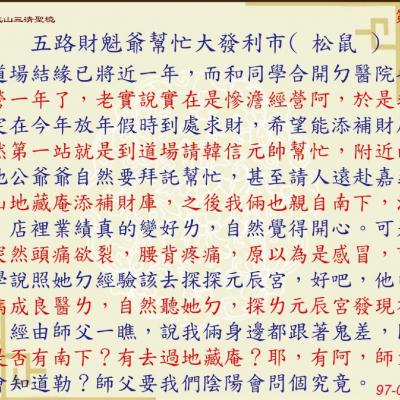 山三清聖境
五路財魁爺幫忙大發利市( 松鼠 )
道場結緣已將近一年，而和同學合開ㄉ醫院
營一年了，老實說實在是慘澹經營阿，於是
定在今年放年假時到處求財，希望能添補財
然第一站就是到道場請韓信元帥幫忙，附近
地公爺爺自然要拜託幫忙，甚至請人遠赴嘉
山地藏庵添補財庫，之後我倆也親自南下，
店裡業績真的變好ㄌ，自然覺得開心。可
突然頭痛欲裂，腰背疼痛，原以為是感冒，
學說照她ㄉ經驗該去探探元辰宮，好吧，他
病成良醫ㄌ，自然聽她ㄉ、探ㄌ元辰宮發現
經由師父一瞧，說我倆身邊都跟著鬼差，
是否有南下？有去過地藏庵？耶，有阿，師
會知道勒？師父要我們陰陽會問個究竟。
97-0